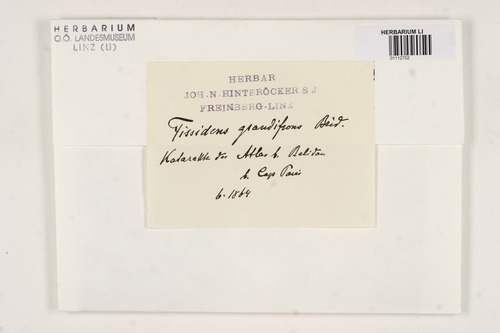 HERBARIUM
O.Ö. LANDESMUSEUM
LINZ (LI)
HERBARIUM LI
01112702
HERBAR
JOH. N. HINTERÖCKER S J
FREINBERG-LINZ
Fissidens grandifrons Brid.
Katarakte des Atlas b. Belidan
b. Cap Paris
6. 1864